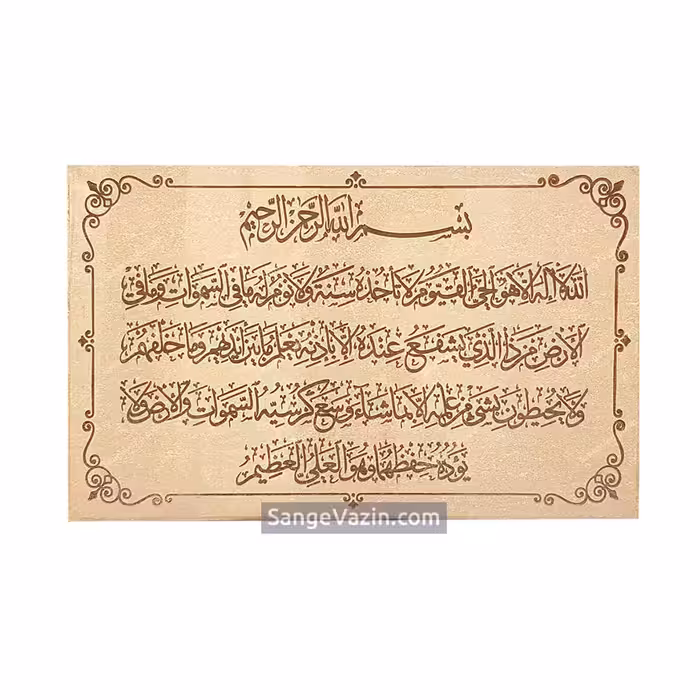 بسم الله الرحمن الرحیم
الله لا إله إلا هو الحي القیوم لا تأخذه سنة ولا نوم له ما في السموات وما في
الأرض من ذا الذي یشفع عنده إلا بأذنه یعلم ما بین أیدیهم وما خلفهم
ولا یحیطون بشيء من علمه إلا بما شاء وسع كرسیه السموات والأرض ولا
یؤده حفظهما وهو العلي العظیم
SangeVazin.com